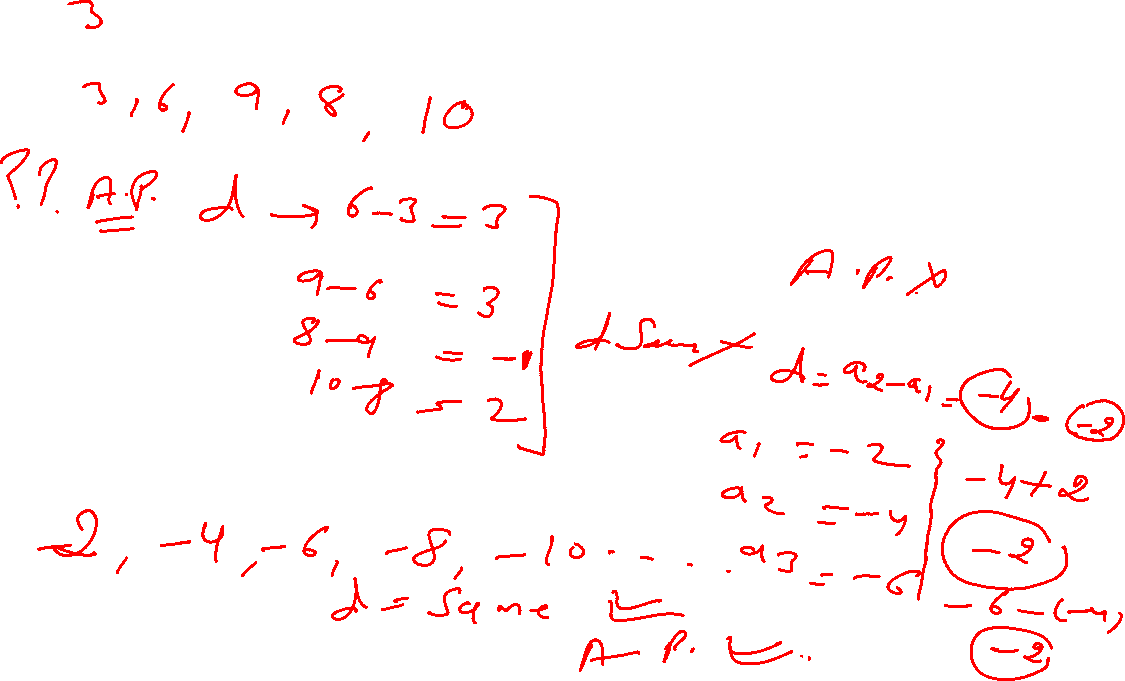 3
3, 6, 9, 8, 10
?? A.P. d → 6-3 = 3
9-6 = 3
8-9 = -1
10-8 = 2
d Same ×
A.P. ×
d = a₂-a₁ = -4 - -2
a₁ = -2
a₂ = -4
a₃ = -6
-4+2
-2
-6-(-4)
-2
-2, -4, -6, -8, -10 . . . . .
d = Same ✓
A.P. ✓